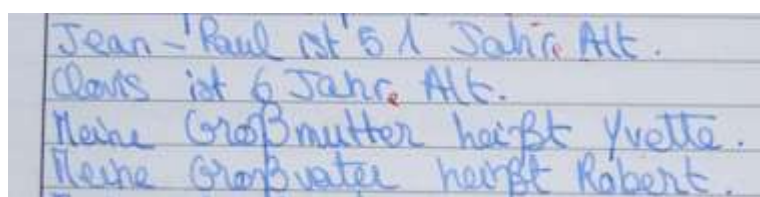 Jean-Paul ist 51 Jahre Alt.
Clovis ist 6 Jahre Alt.
Meine Großmutter heißt Yvette.
Meine Großvater heißt Robert.